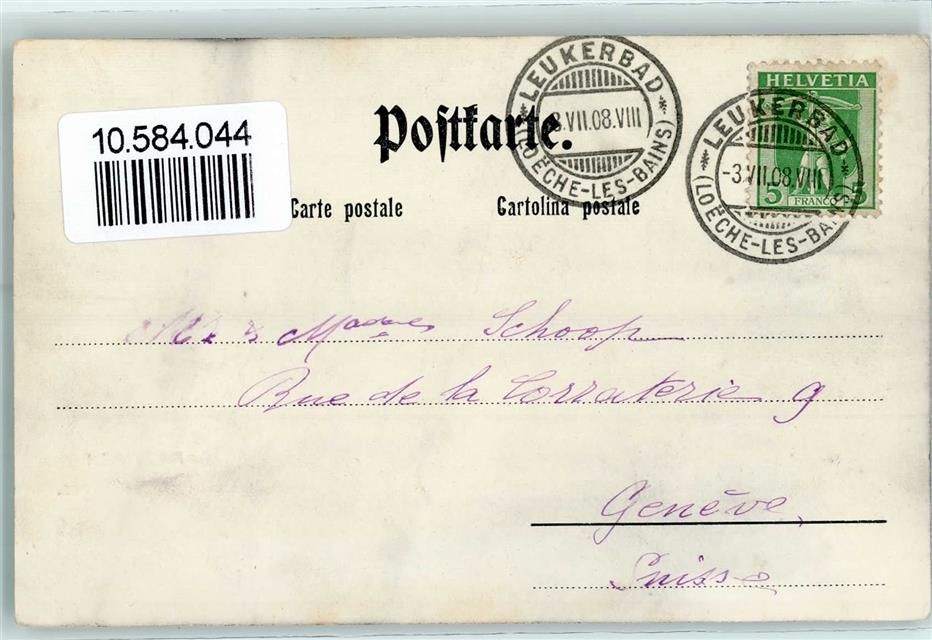 10.584.044
Postkarte.
Carte postale
Cartolina postale
LEUKERBAD
VII.08.VIII
(LOËCHE-LES-BAINS)
HELVETIA
5 FRANCO 5
LEUKERBAD
-3.VII.08.VIII
(LOËCHE-LES-BAINS)
Mr & Madame Schoop
Rue de la Corraterie 9
Genève,
Suisse